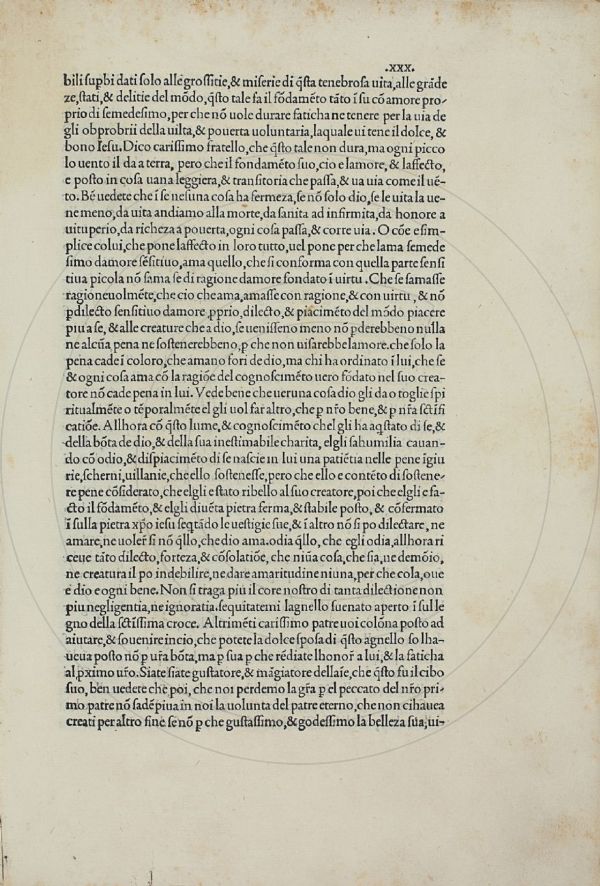 .XXX.
bili supbi dati solo alle grossitie,& miserie di q̃sta tenebrosa uita,alle grãde
ze,stati,& delitie del mõdo,q̃sto tale fa il fõdamẽto tãto ĩ su cõ amore pro-
prio di semedesimo,per che nõ uole durare faticha ne tenere per la uia de
gli obprobrii della uilta,& pouerta uoluntaria,laquale ui tene il dolce,&
bono Iesu. Dico carissimo fratello,che q̃sto tale non dura,ma ogni picco
lo uento il da a terra, pero che il fondamẽto suo,cio e lamore,& laffecto,
e posto in cosa uana leggiera,& transitoria che passa,& ua uia come il uẽ-
to. Bẽ uedete che ĩ se nesuna cosa ha fermeza,se nõ solo dio,se le uita la ue-
ne meno,da uita andiamo alla morte,da sanita ad infirmita,da honore a
uituperio,da richeza a pouerta,ogni cosa passa,& corre uia. O cõe e sim-
plice colui,che pone laffecto in loro tutto,uel pone per che lama semede
simo damore sẽsitiuo,ama quello,che si conforma con quella parte sensi
tiua picola nõ sama se di ragione damore fondato ĩ uirtu. Che se samasse
ragioneuolmẽte,che cio che ama,amasse con ragione,& con uirtu, & nõ
p dilecto sensitiuo damore.pprio,dilecto,& piacimẽto del mõdo piacere
piu a se,& alle creature che a dio,se uenisseno meno nõ pderebbeno nulla
ne alcũa pena ne sostenerebbeno,p che non uisarebbe lamore.che solo la
pena cade ĩ coloro,che amano fori de dio,ma chi ha ordinato ĩ lui,che se
& ogni cosa ama cõ la ragiõe del cognoscimẽto uero fõdato nel suo crea-
tore nõ cade pena in lui. Vede bene che ueruna cosa dio gli da o toglie spi
ritualmẽte o tẽporalmẽte el gli uol far altro,che p nr̃o bene,& p nr̃a sctĩfi
catiõe. Allhora cõ q̃sto lume,& cognoscimẽto chel gli ha aq̃stato di se,&
della bõta de dio,& della sua inestimabile charita, elgli sahumilia cauan-
do cõ odio,& dispiacimẽto di se nascie in lui una patiẽtia nelle pene ĩgiu
rie,scherni,uillanie,che ello sostenesse,pero che ello e contẽto di sostene-
re pene cõsiderato,che elgli e stato ribello al suo creatore,poi che elgli e fa-
cto il fõdamẽto,& elgli diuẽta pietra ferma,& stabile posto, & cõfermato
ĩ sulla pietra xp̃o iesu seq̃tãdo le uestigie sue,& ĩ altro nõ si po dilectare,ne
amare,ne uoler̃ si nõ q̃llo,che dio ama.odia q̃llo,che egli odia,allhora ri
ceue tãto dilecto,forteza,& cõsolatiõe, che niũa cosa,che sia,ne demõio,
ne creatura il po indebilire,ne dare amaritudine niuna,per che cola,oue
e dio e ogni bene. Non si traga piu il core nostro di tanta dilectione non
piu negligentia,ne ignorãtia.sequitatemi lagnello suenato aperto ĩ sul le
gno della sctĩssima croce. Altrimẽti carissimo patre uoi colõna posto ad
aiutare,& souenire incio,che potete la dolce sposa di q̃sto agnello so lha-
ueua posto nõ p ur̃a bõta,ma p sua p che rẽdiate lhonor̃ a lui,& la faticha
al pximo ur̃o. Siate siate gustatore,& mãgiatore dellaie,che q̃sto fu il cibo
suo, ben uedete che poi, che noi perdemo la gr̃a p el peccato del nr̃o pri-
mo patre nõ sadẽpiua in noi la uolunta del patre eterno,che non cihauea
creati per altro fine se nõ p che gustassimo,& godessimo la belleza sua,ui-